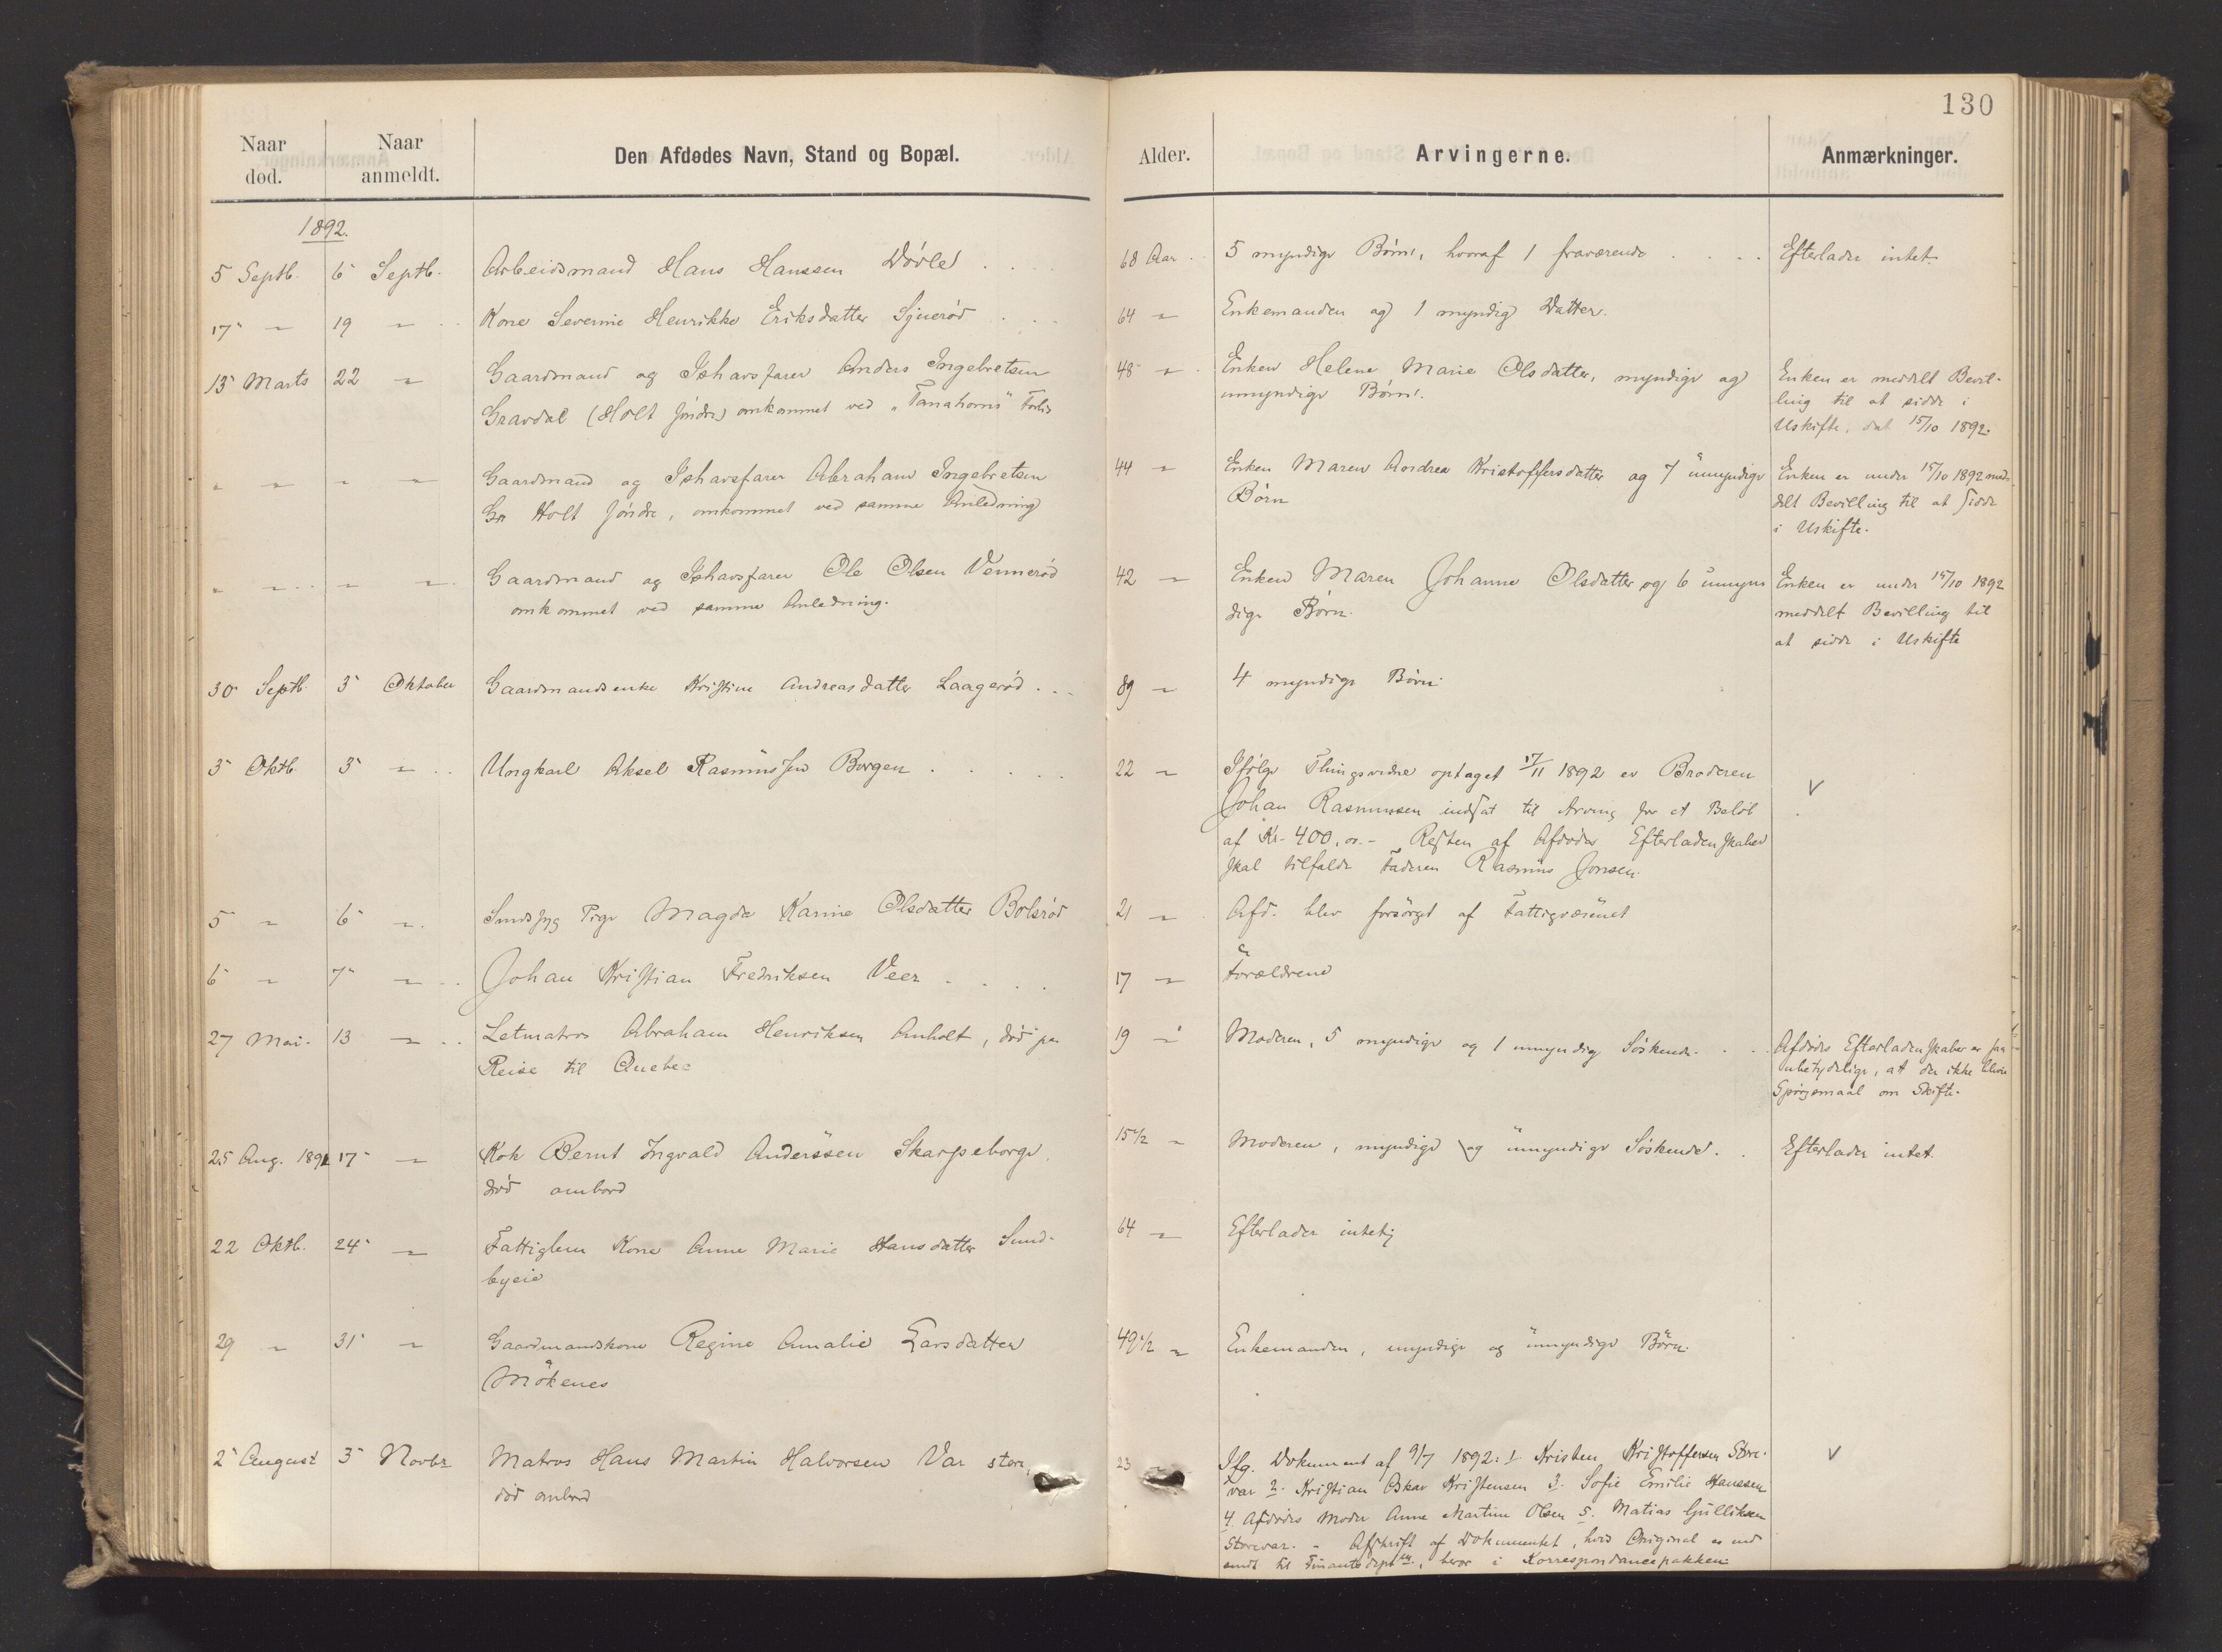 130
Naar død. Naar anmeldt. Den Afdødes Navn, Stand og Bopæl. Alder. Arvingerne. Anmærkninger.
1892.
5 Septb. 6 Septb. Arbeidsmand Hans Hanssen Døvle 68 Aar 5 myndige Børn, hvoraf 1 fraværende Efterlader intet.
17 " 19 " Kone Severine Henrikke Eriksdatter 64 " Enkemanden og 1 myndig Datter.
13 Marts 22 " Gaardmand og Ishavsfarer Anders Ingebretsen 48 " Enken Helene Marie Olsdatter, myndige og Enken er meddelt Bevil-
Gravdal (Holt søndre) omkommet ved "Tanahorns" Forlis umyndige Børn. ling til at sidde i
Uskifte, dat 15/10 1892.
" " " " Gaardmand og Ishavsfarer Abraham Ingebretsen 44 " Enken Maren Andrea Kristoffersdatter og 7 umyndige Enken er under 15/10 1892 med-
Holt søndre, omkommet ved samme Anledning Børn delt Bevilling til at sidde
i Uskifte.
" " " " Gaardmand og Ishavsfarer Ole Olsen Vennerød 42 " Enken Maren Johanne Olsdatter og 6 umyn Enken er under 15/10 1892
omkommet ved samme Anledning. dige Børn. meddelt Bevilling til
at sidde i Uskifte
30 Septb. 3 Oktober Gaardmandsenke Kristine Andreasdatter Laagerød 89 " 4 myndige Børn
3 Oktb. 5 " Ungkarl Aksel Rasmussen Borgen 22 " Ifølge Thingsvidne optaget 17/11 1892 er Broderen V
Johan Rasmussen indsat til Arving for et Beløb
af Kr. 400,00.- Resten af Afdødes Efterladenskaber
skal tilfalde Faderen Rasmus Jonsen.
5 " 6 " Sindssyg Pige Magda Karine Olsdatter Bolsrød 21 " Afd. blev forsørget af Fattigvæsenet
6 " 7 " Johan Kristian Fredriksen Veer 17 " Forældrene
27 Mai. 13 " Letmatros Abraham Henriksen Anholt, død paa 19 " Moderen, 5 myndige og 1 umyndig Søskende. Afdødes Efterladenskaber er saa
Reise til Quebec ubetydelige, at der ikke bliver
Spørgsmaal om Skifte.
25 Aug. 1892 17 " Kok Bernt Ingvald Anderssen Skarpeborge, 15 1/2 " Moderen, myndige og umyndige Søskende. Efterlader intet.
død ombord
22 Oktb. 24 " Fattiglem Kone Anne Marie Hansdatter Sund- 64 " Efterlader intet
byeie
29 " 31 " Gaardmandskone Regine Amalie Larsdatter 49 1/2 " Enkemanden, myndige og umyndige Børn.
Møkenes
2 August 3 Novbr Matros Hans Martin Halvorsen Var store, 23 Ifg. Dokument af 9/7 1892: 1. Kristen Kristoffersen Store- V
død ombord var 2. Kristian Oskar Kristensen 3. Sofie Emilie Hanssen
4. Afdødes Moder Anne Martine Olsen 5. Matias Gulliksen
Storevar. - Afskrift af Dokumentet, hvis Original er ind
sendt til Finantsdeptet., beror i Korrespondancepakken.